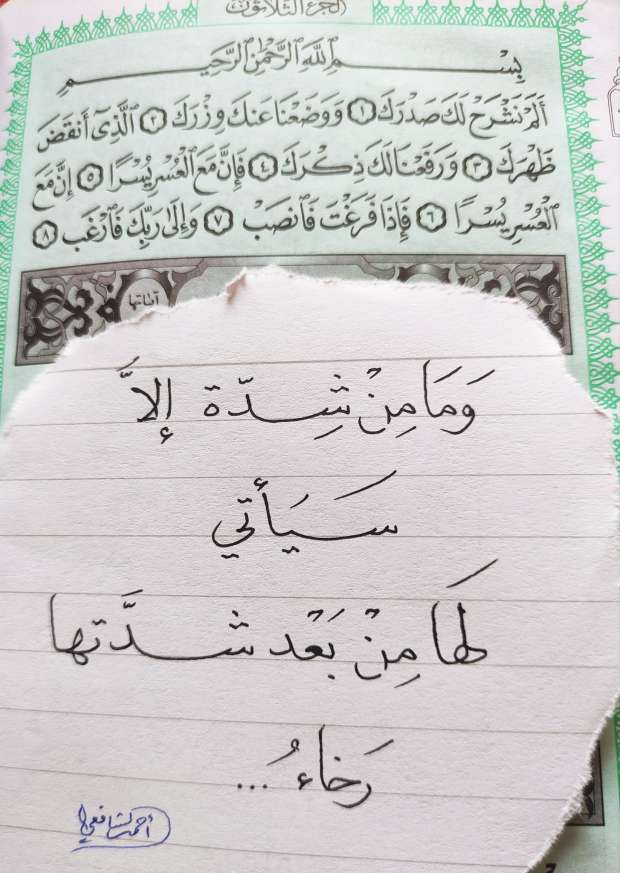 الجزء الثلاثون
بِسْمِ ٱللَّهِ ٱلرَّحْمَٰنِ ٱلرَّحِيمِ
أَلَمْ نَشْرَحْ لَكَ صَدْرَكَ ١ وَوَضَعْنَا عَنكَ وِزْرَكَ ٢ ٱلَّذِىٓ أَنقَضَ
ظَهْرَكَ ٣ وَرَفَعْنَا لَكَ ذِكْرَكَ ٤ فَإِنَّ مَعَ ٱلْعُسْرِ يُسْرًا ٥ إِنَّ مَعَ
ٱلْعُسْرِ يُسْرًا ٦ فَإِذَا فَرَغْتَ فَٱنصَبْ ٧ وَإِلَىٰ رَبِّكَ فَٱرْغَب ٨
آياتها
وَمَا مِنْ شِدّة إلاَّ
سَيَأتي
لَها مِنْ بَعْد شدَّتها
رَخاءُ ...
أحمد الشافعي